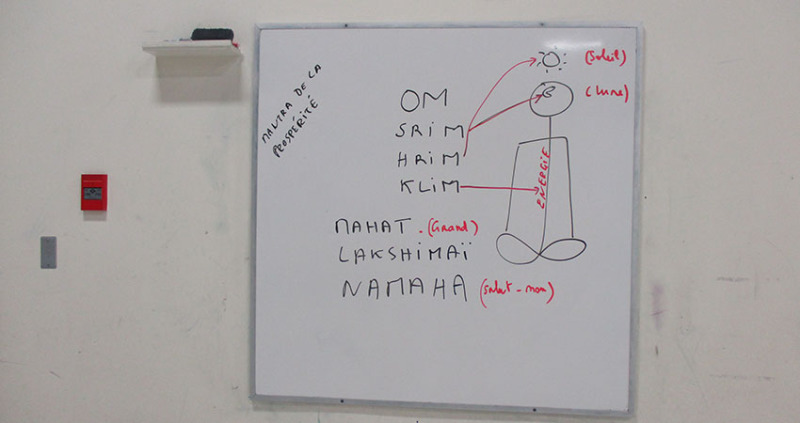 MANTRA DE LA
PROSPÉRITÉ
OM
SRIM
HRIM
KLIM
MAHAT. (Grand)
LAKSHIMAÏ
NAMAHA (salut-nom)
(Soleil)
(lune)
ENERGIE